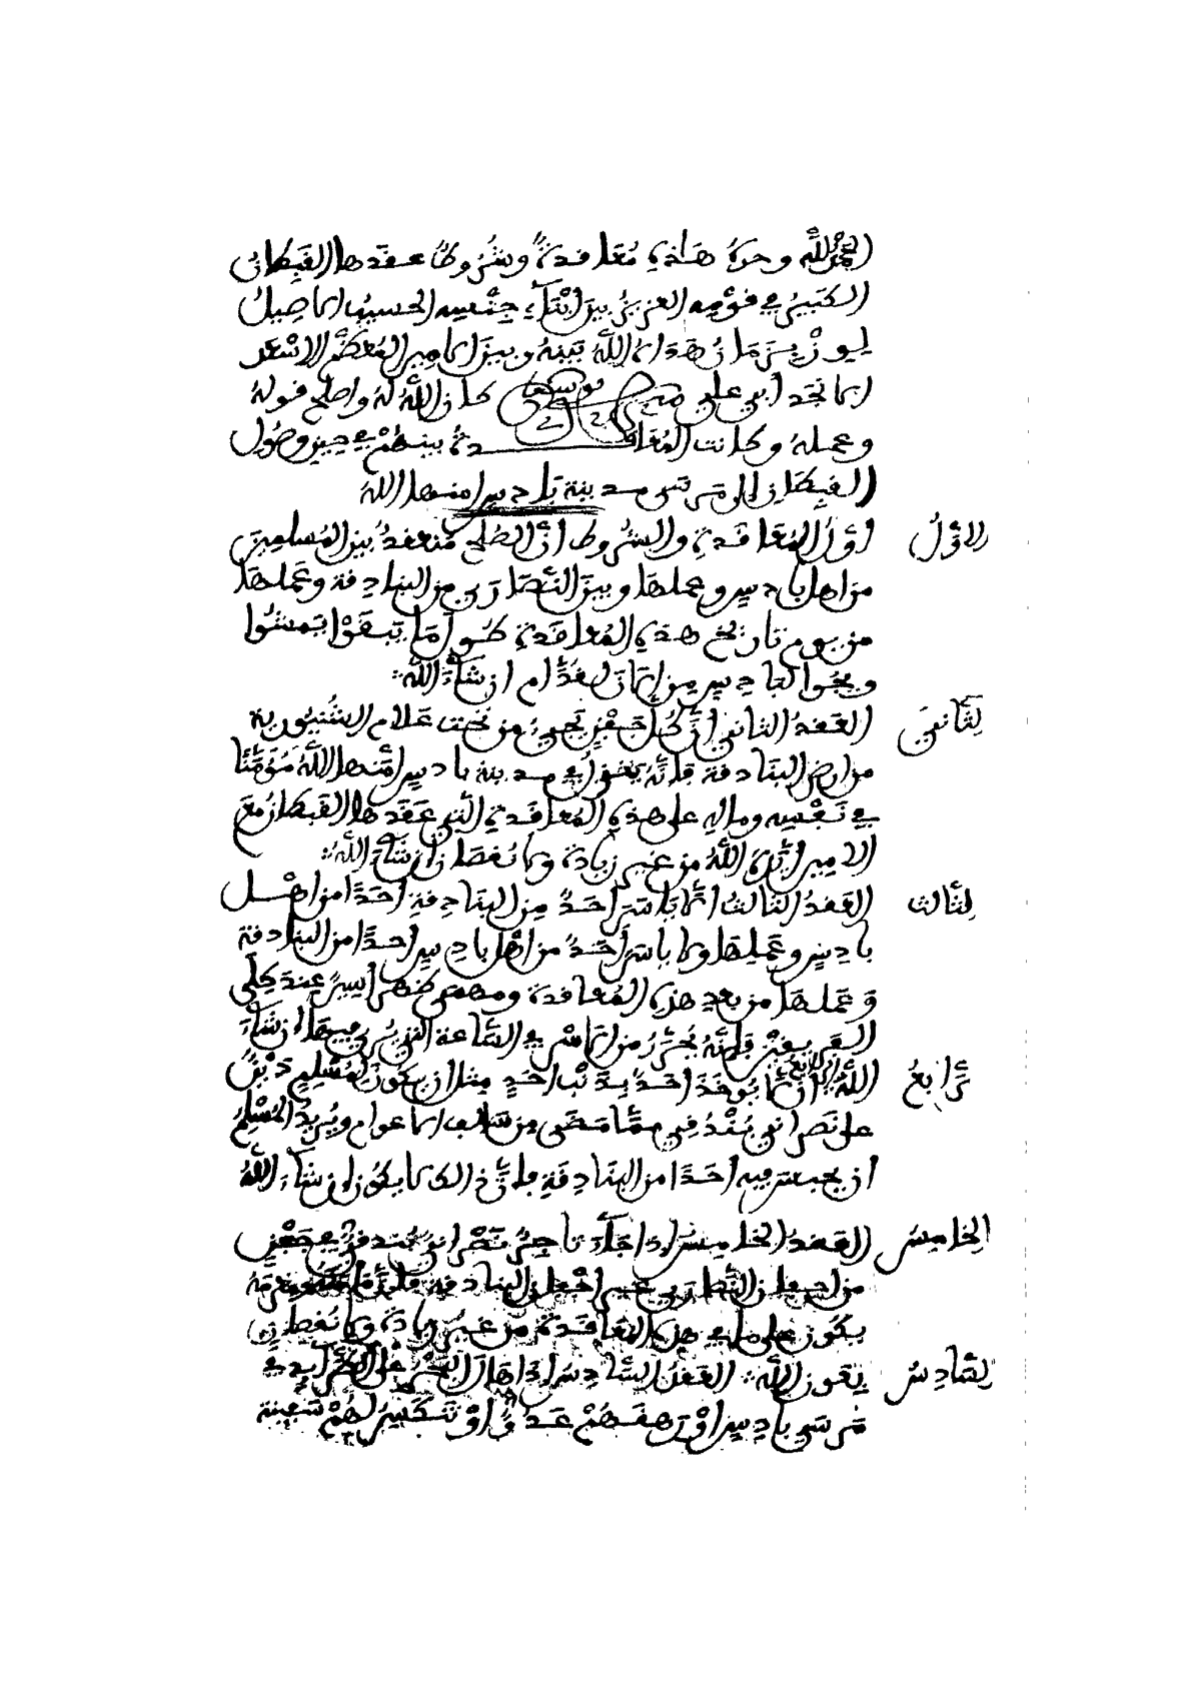 الحمد لله وحده هاذه معاقدة وشروط عقدها القبطان
الكبير في قومه العزيز بين ابناء جنسه الحسيب الاصيل
هداه الله بينه وبين الامير المعظم الاسعد
الامجد ابي علي منصور كان الله له واصلح قوله
وعمله وكانت المعاقدة بينهم في حين وصول
القبطان الى مرسى مدينة بادس امنها الله
الاول
اول المعاقدة والشروط ان الصلح منعقد بين المسلمين
من اهل بادس وعملها وبين النصارى من البنادقة وعملها
من يوم تاريخ هذه المعاقدة
لبادس من الان لقدام ان شاء الله
الثاني
العقد الثاني ان كل جفن يجري من تحت علام الشنيورية
من ارض البنادقة فانه مدينة بادس امنها الله مؤمنا
في نفسه وماله على هذه المعاقدة التي عقدها القبطان مع
الامير ايده الله من غير زيادة ولا نقصان ان شاء الله
الثالث
العقد الثالث الا ياسر احد من البنادقة احدا من اهل
بادس وعملها ولا ياسر احد من اهل بادس احدا من البنادقة
وعملها من بعد هذه المعاقدة ومهمى ظهر اسير عند كلى
الفريقين فانه يسرح من الاسر في الساعة التي يرى فيها ان شاء
رابع
الله الرابع ان لا يوخذ احد بذنب احد مثل ان يكون لمسلم دين
على نصراني بندقي مما مضى من سالف الاعوام ويريد المسلم
ان يحبس فيه احدا من البنادقة فان ذالك لا يكون ان شاء الله
الخامس
العقد الخامس اذا جاء تاجر نصراني بندقي في جفن
من اجفان النصارى غير اجفان البنادقة فان
يكون على ما في هذه المعاقدة من غير زيادة ولا نقصان
السادس
بعون الله العقد السادس اذا هال البحر على النصارى في
مرسى بادس او رهقهم عدو او تنكسر لهم سفينة